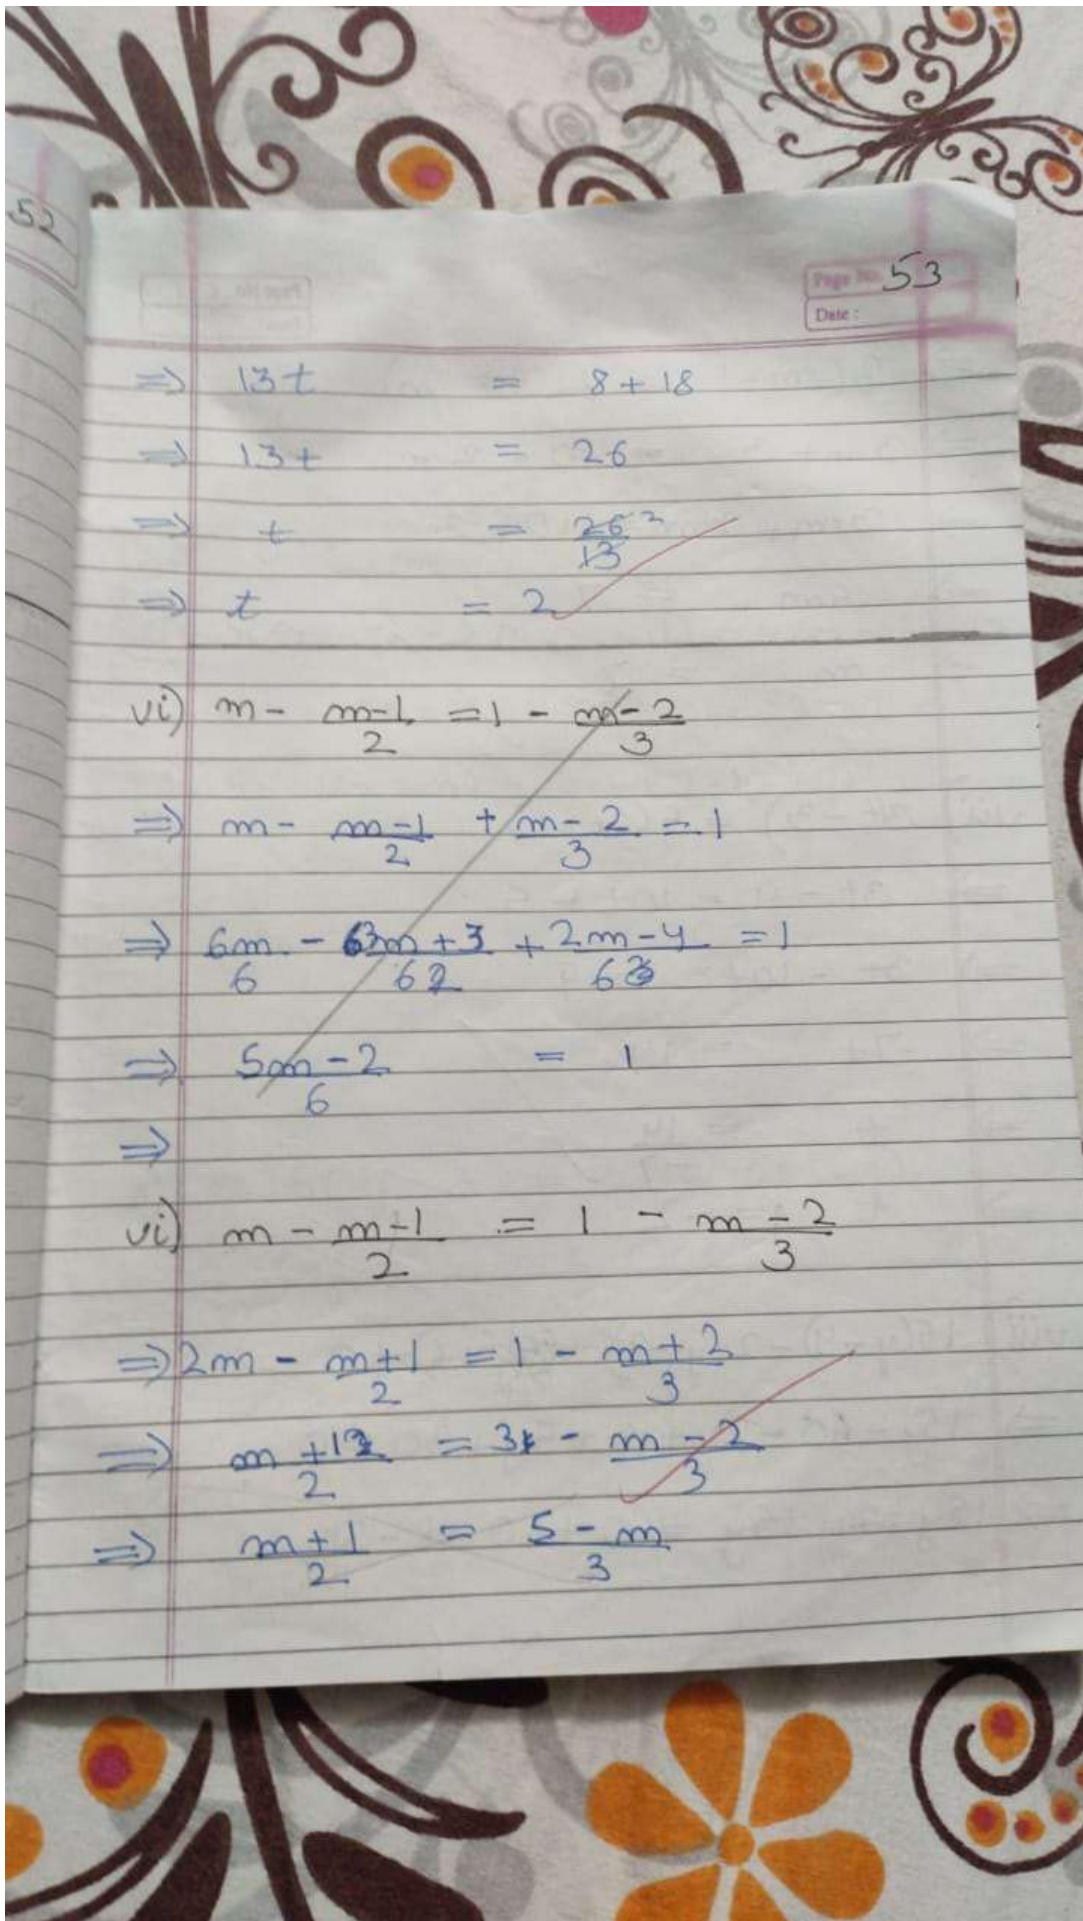 52
Page No. 53
Date :
⇒ 13t = 8 + 18
⇒ 13t = 26
⇒ t = 26/13 2
⇒ t = 2
vi) m - m-1/2 = 1 - m-2/3
⇒ m - m-1/2 + m-2/3 = 1
⇒ 6m/6 - 3m+3/6 + 2m-4/6 = 1
⇒ 5m-2/6 = 1
⇒
vi) m - m-1/2 = 1 - m-2/3
⇒ 2m - m+1/2 = 1 - m+2/3
⇒ m+1/2 = 3 - m-2/3
⇒ m+1/2 = 5-m/3